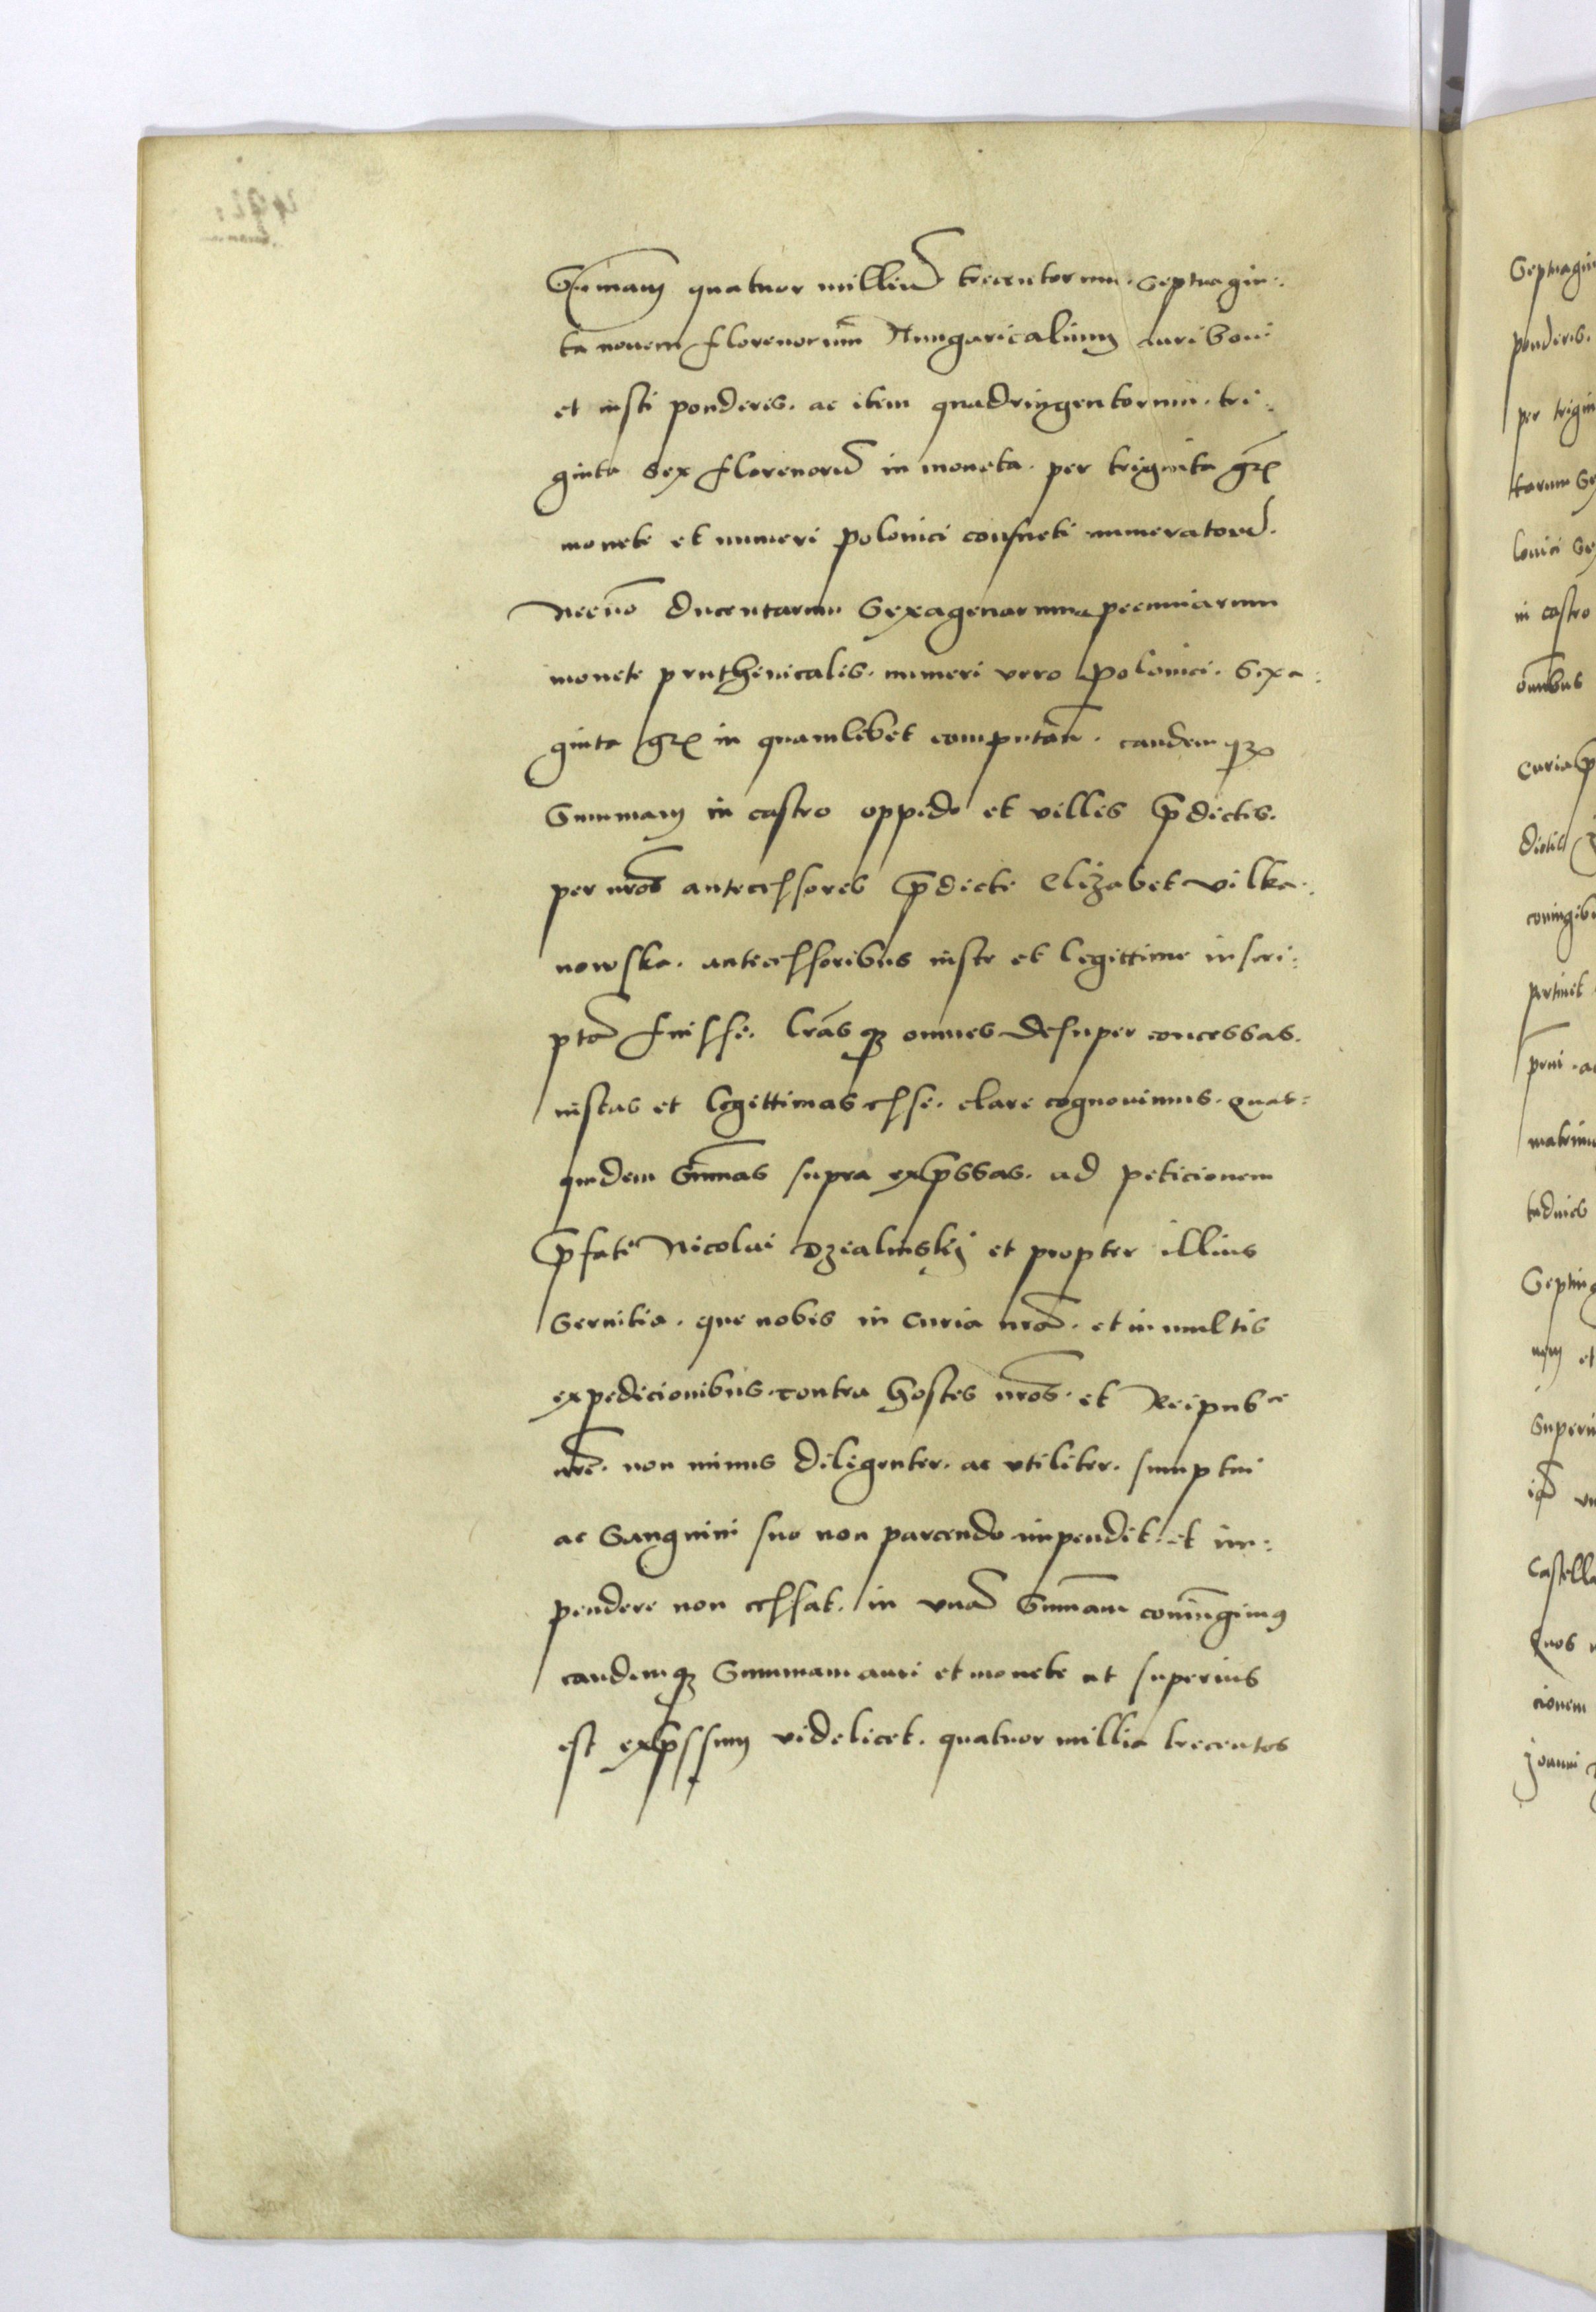 Sum̄am quatuor milliū trecentorum. septuagin:
ta nouem florenorum̄ Hungaricalium auri boni
et iusti ponderis. ac item quadringentorum. tri:
ginta sex florenorū in moneta. per triginta gr̄
monete et numeri polonici consueti numeratorū.
Necnō ducentarum Sexagenarum pecuniarum
monete pruthenicalis. numeri vero polonici. Sexa:
ginta gr̄ in quamlibet computan̄. eandemqꝫ
Summam in castro oppido et villis p̄dictis.
per nr̄os antecessores p̄dicte Elizabet vilka:
nowska. antecessoribus iuste et legittime inscri:
ptā fuisse. lr̄asqꝫ omnes desuper concessas.
iustas et legittimas esse. clare cognouimus. quas:
quidem Sum̄as supra exp̄ssas. ad peticionem
p̄fati Nicolai Dzialinskij et propter illius
Seruitia. que nobis in Curia nr̄a. et in multis
expedicionibus. contra hostes nr̄os. et Reipub ce
nr̄e. non minus diligenter. ac vtiliter. sumptui
ac Sanguini suo non parcendo impendit. et im:
pendere non cessat. in vnā Sum̄am coniungimus
eandemqꝫ Summam auri et monete ut superius
est exp̄ssum videlicet. quatuor millia trecentos
Septuagin
ponderis.
per trigin
tarum Se
lonici Se
in castro
om̄ibus
Curia
dictis
coniungibu
pertinet
matrimo
Septing
num et
Superiu
Castella
Quos
cionem
Joanni